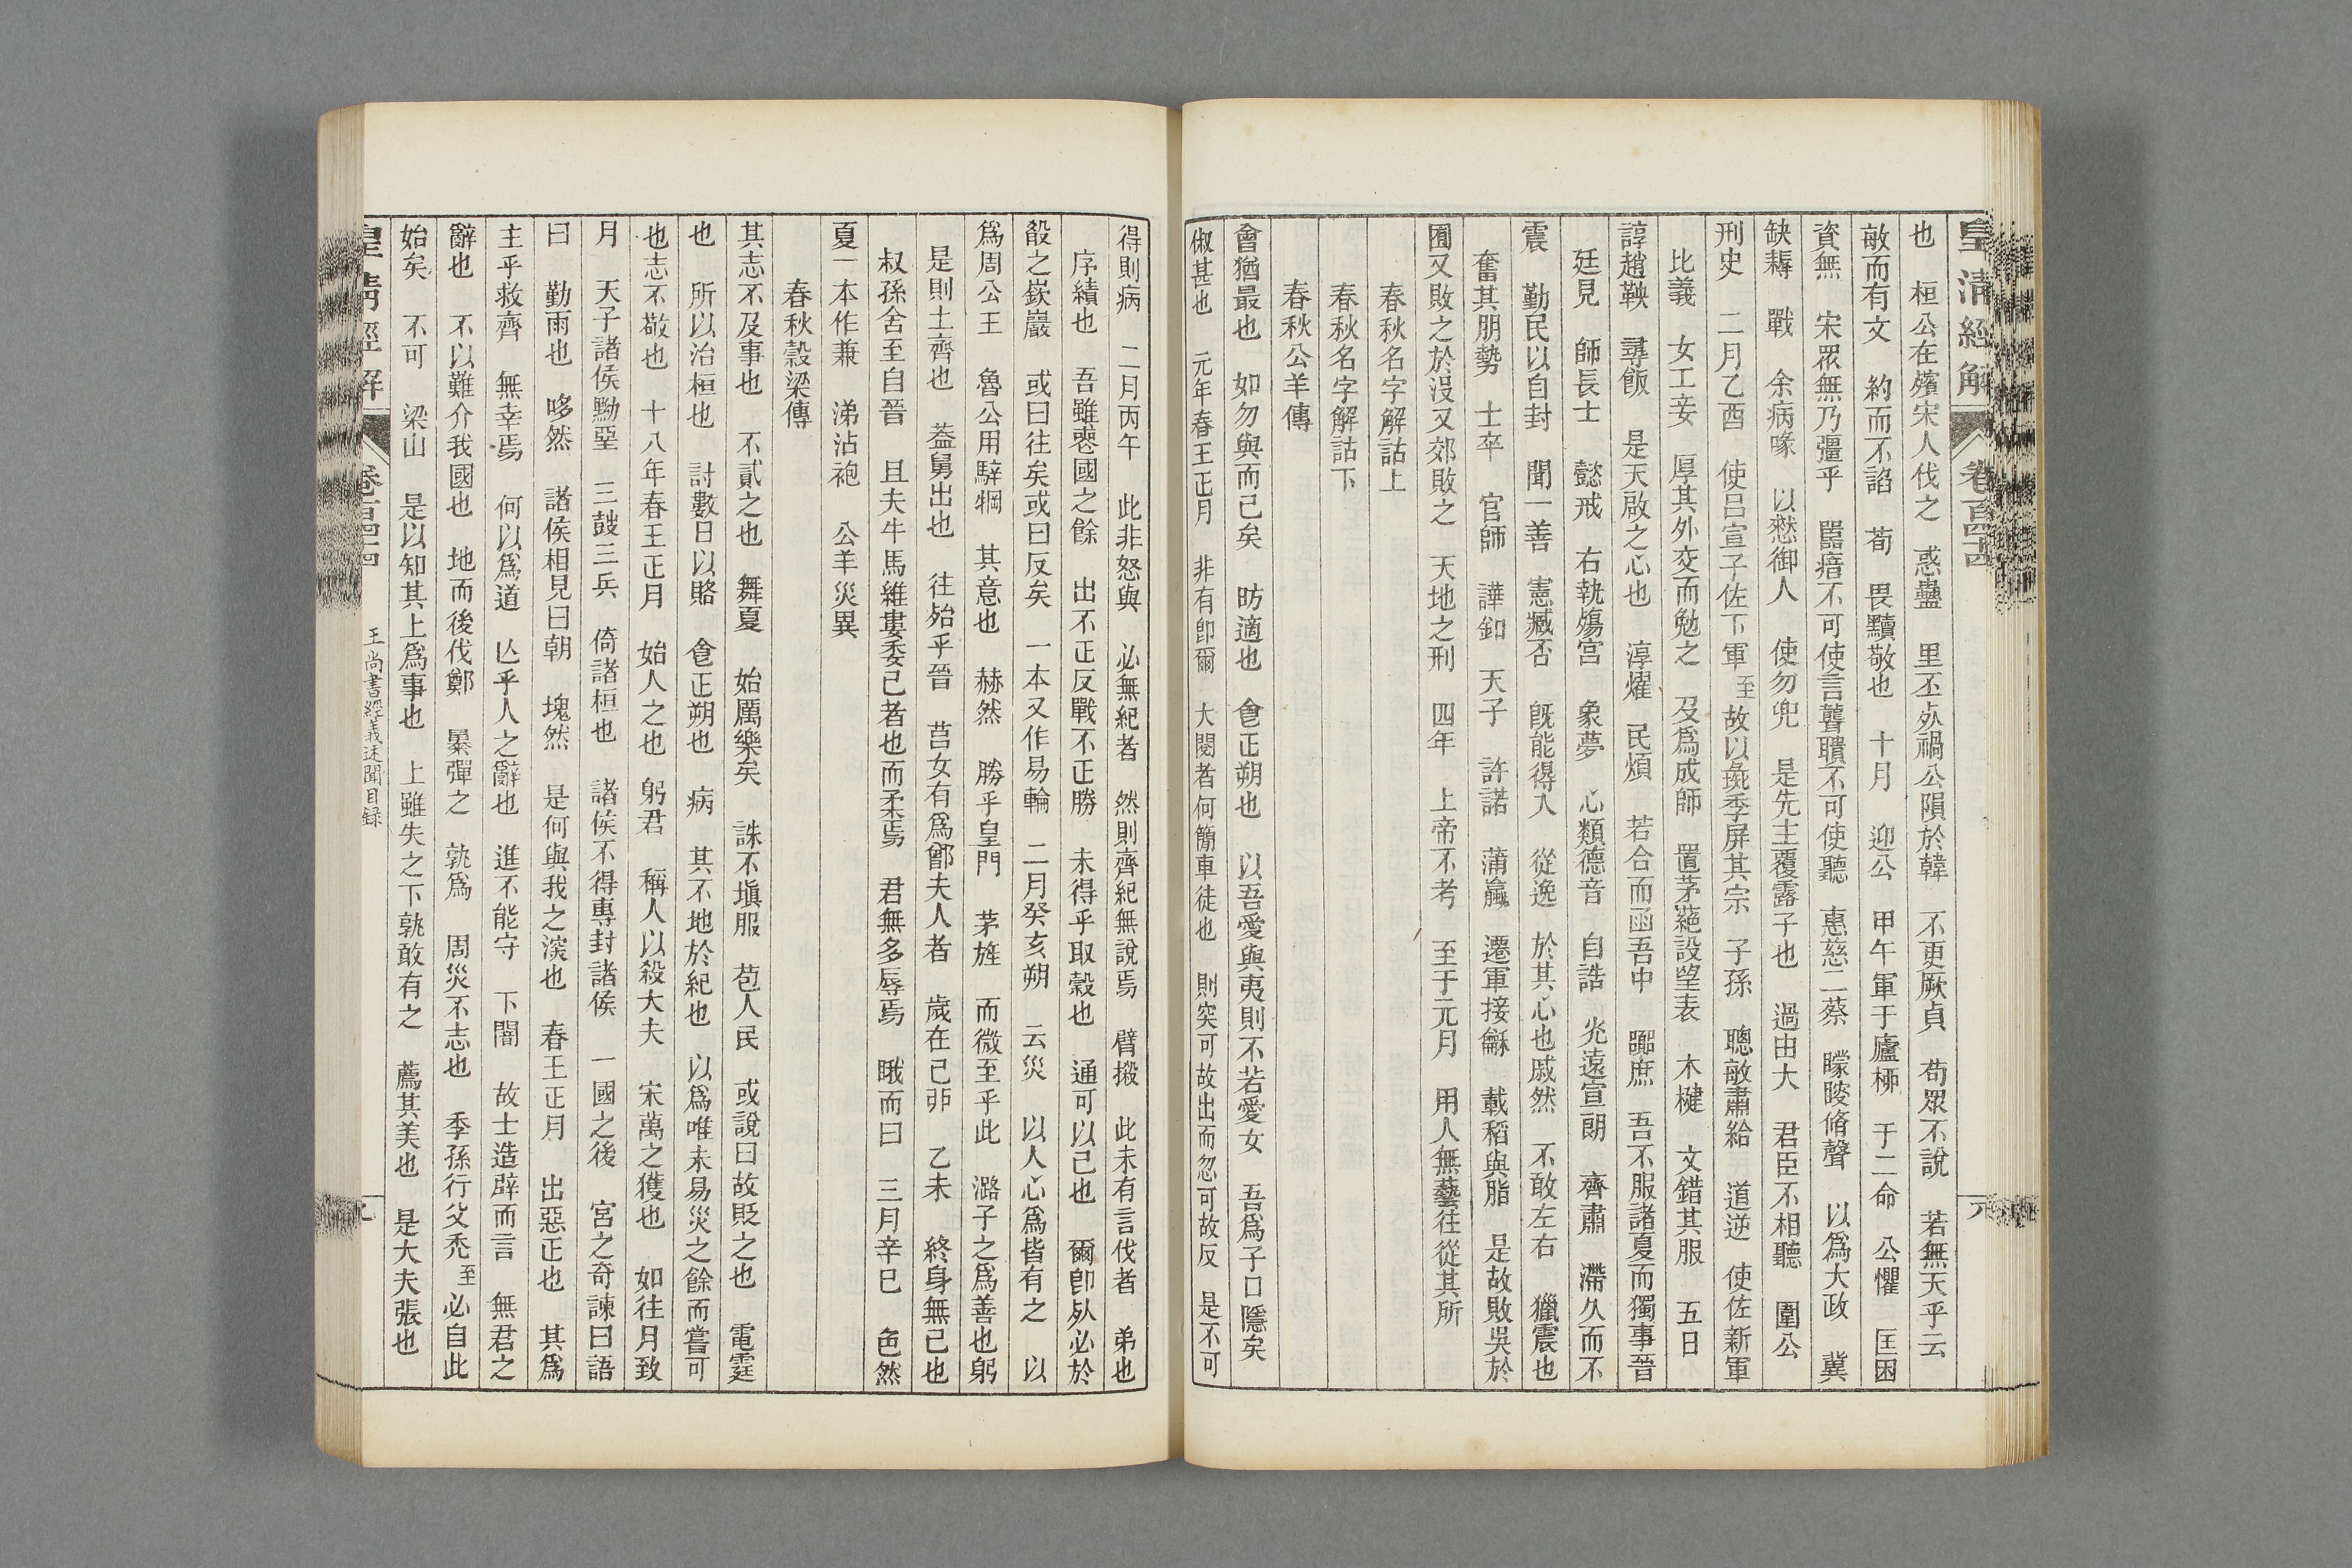 皇清經解　卷百四十四
也　桓公在殯宋人伐之　惑蠱　里丕死禍公隕於韓　不更厥貞　苟眾不說　若無天乎云
敏而有文　約而不諂　荀　畏黷敬也　十月　迎公　甲午軍于廬柳　于二命　公懼　匡困
資無　宋眾無乃彊乎　嚚瘖不可使言聾聵不可使聽　惠慈二蔡　矇瞍脩聲　以為大政　冀
缺耨　戰　余病喙　以憖御人　使勿兜　是先主覆露子也　過由大　君臣不相聽　圍公
刑史　二月乙酉　使呂宣子佐下軍　至　故以彘季屏其宗　子孫　聰敏肅給　道逆　使佐新軍
比義　女工妾　厚其外交而勉之　及為成師　置茅蕝設望表　木楗　文錯其服　五日
諄趙鞅　尋飯　是天啟之心也　淳燿　民煩　若合而函吾中　踯庶　吾不服諸夏而獨事晉
廷見　師長士　懿戒　右執殤宮　象夢　心類德音　自誥　光遠宣朗　齊肅　滯久而不
震　勤民以自封　聞一善　憲臧否　既能得人　從逸　於其心也戚然　不敢左右　獵震也
奮其朋勢　士卒　官師　譁釦　天子　許諾　蒲蠃　遷軍接龢　載稻與脂　是故敗吳於
囿又敗之於沒又郊敗之　天地之刑　四年　上帝不考　至于元月　用人無藝往從其所
春秋名字解詁上
春秋名字解詁下
春秋公羊傳
會猶最也　如勿與而已矣　昉適也　㑹正朔也　以吾愛與夷則不若愛女　吾為子口隱矣
俶甚也　元年春王正月　非有卽爾　大閱者何簡車徒也　則突可故出而忽可故反　是不可
得則病　二月丙午　此非怒與　必無紀者　然則齊紀無說焉　臂摋　此未有言伐者　弟也
序績也　吾雖䘮國之餘　出不正反戰不正勝　未得乎取穀也　通可以已也　爾卽死必於
殽之嶔巖　或曰往矣或曰反矣　一本又作易輪　二月癸亥朔　云災　以人心為皆有之　以
為周公王　魯公用騂犅　其意也　赫然　勝乎皇門　茅旌　而微至乎此　潞子之為善也躬
是則土齊也　蓋舅出也　往殆乎晉　莒女有為鄫夫人者　歲在己丣　乙未　終身無已也
叔孫舍至自晉　且夫牛馬維婁委己者也而柔焉　君無多辱焉　睋而曰　三月辛巳　色然
夏一本作兼　涕沾袍　公羊災異
春秋穀梁傳
其志不及事也　不貳之也　舞夏　始厲樂矣　誅不塡服　苞人民　或說曰故貶之也　電霆
也　所以治桓也　討數日以賂　㑹正朔也　病　其不地於紀也　以為唯未易災之餘而嘗可
也志不敬也　十八年春王正月　始人之也　躬君　稱人以殺大夫　宋萬之獲也　如往月致
月　天子諸侯黝堊　三鼓三兵　倚諸桓也　諸侯不得專封諸侯　一國之後　宮之奇諫曰語
曰　勤雨也　哆然　諸侯相見曰朝　塊然　是何與我之深也　春王正月　出惡正也　其為
主乎救齊　無幸焉　何以為道　亾乎人之辭也　進不能守　下闇　故士造辟而言　無君之
辭也　不以難介我國也　地而後伐鄭　暴彈之　孰為　周災不志也　季孫行父禿　至　必自此
始矣　不可　梁山　是以知其上為事也　上雖失之下孰敢有之　薦其美也　是大夫張也
皇清經解　卷百四十四　王尚書經義述聞目録